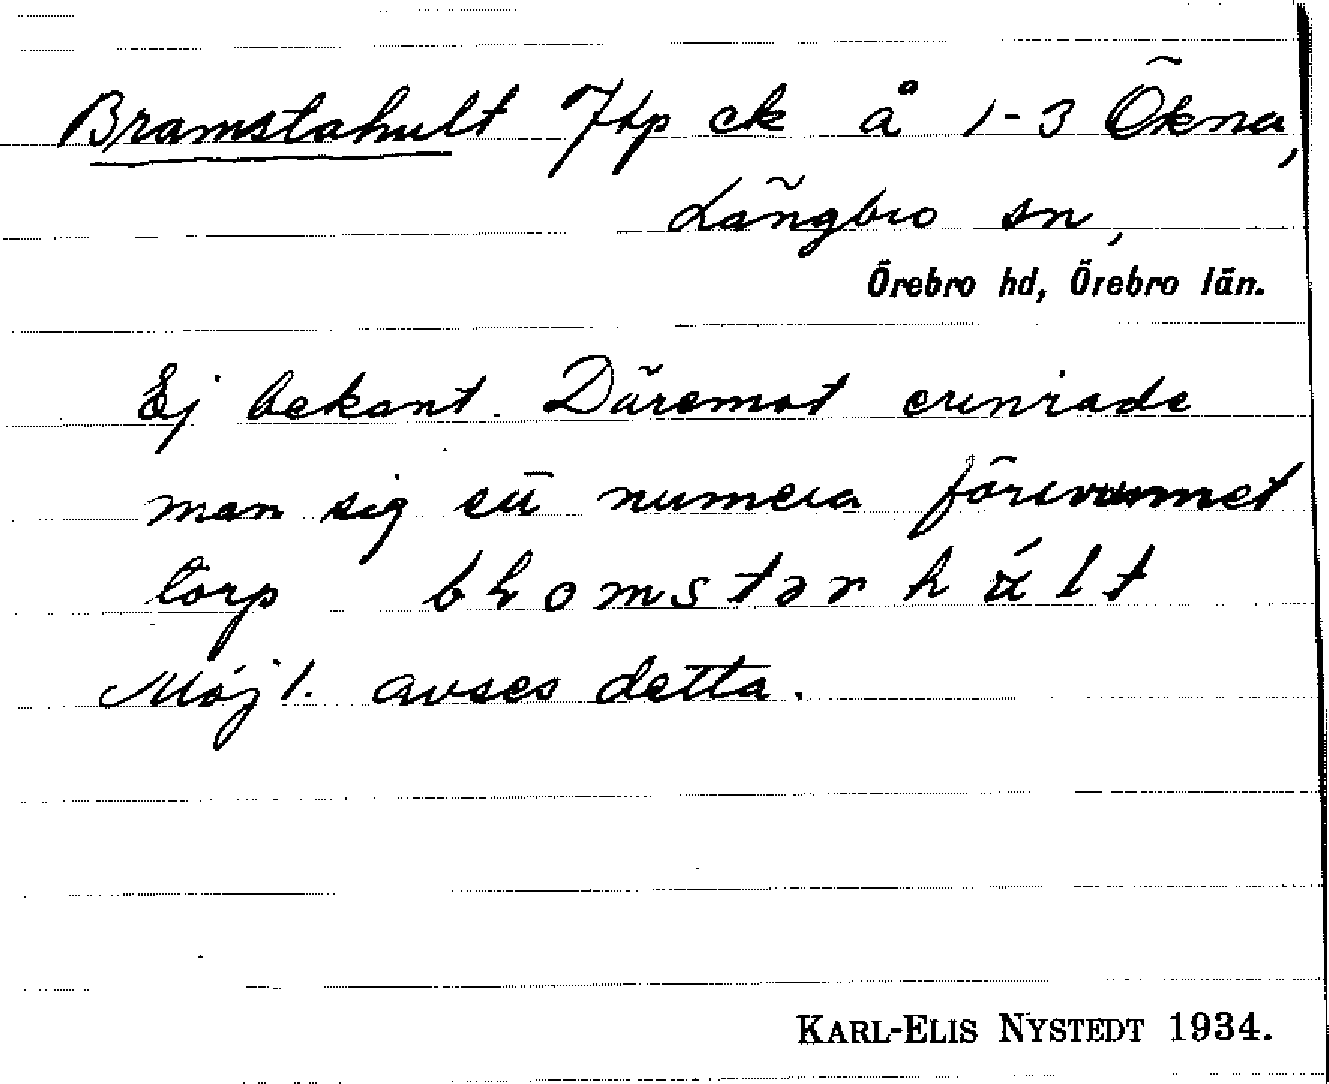 Bramstahult Jtp ek å 1-3 Ökna,
Längbro sn,
Örebro hd, Örebro län.
Ej bekant. Däremot erinrade
man sig ett numera försvunnet
torp
Möjl. avses detta.
KARL-ELIS NYSTEDT 1934.